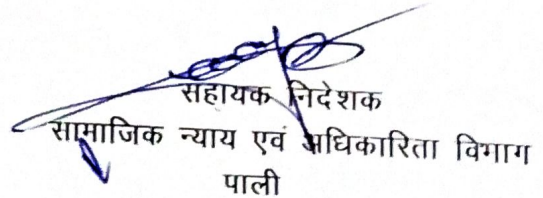 सहायक निदेशक
सामाजिक न्याय एवं अधिकारिता विभाग
पाली